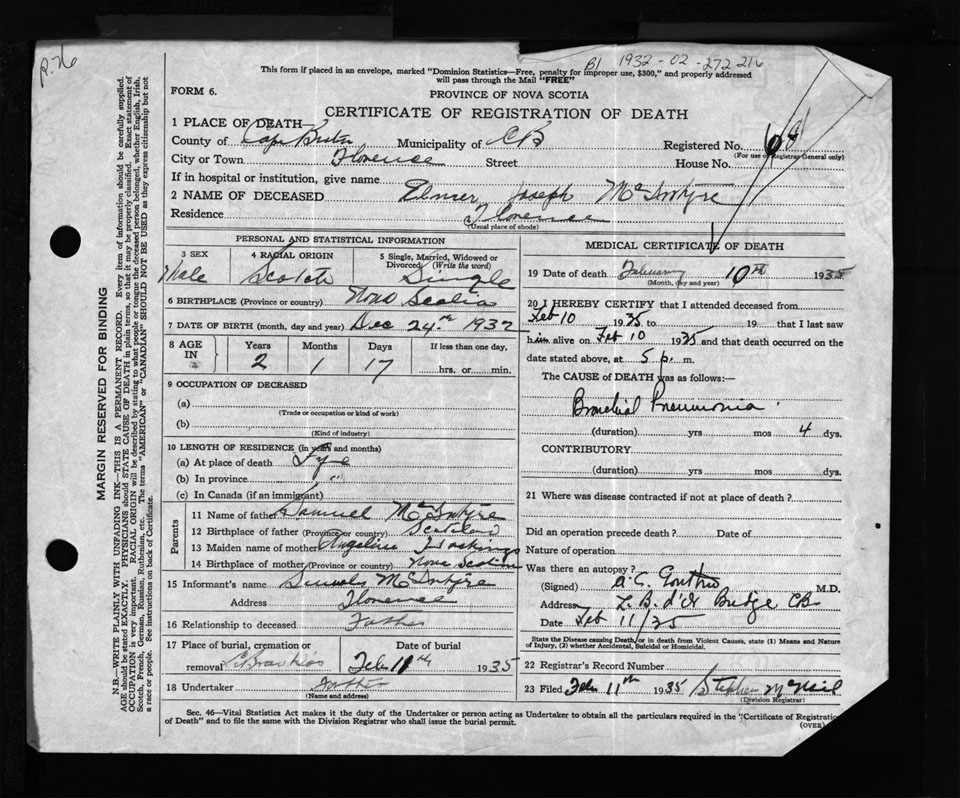 R.76
B1 1932-02-272216
This form if placed in an envelope, marked "Dominion Statistics—Free, penalty for improper use, $300," and properly addressed
will pass through the Mail "FREE"
FORM 6.
PROVINCE OF NOVA SCOTIA
CERTIFICATE OF REGISTRATION OF DEATH
1 PLACE OF DEATH—
County of Cape Breton Municipality of C B Registered No.
(For use of Registrar General only)
City or Town Florence Street House No.
If in hospital or institution, give name
2 NAME OF DECEASED Elmer Joseph McIntyre
Residence Florence
(Usual place of abode)
PERSONAL AND STATISTICAL INFORMATION
3 SEX 4 RACIAL ORIGIN 5 Single, Married, Widowed or Divorced (Write the word)
Male Scotch Single
6 BIRTHPLACE (Province or country) Nova Scotia
7 DATE OF BIRTH (month, day and year) Dec 24th 1932
8 AGE IN Years Months Days If less than one day,
2 1 17 hrs. or min.
9 OCCUPATION OF DECEASED
(a)
(Trade or occupation or kind of work)
(b)
(Kind of industry)
10 LENGTH OF RESIDENCE (in years and months)
(a) At place of death Life
(b) In province "
(c) In Canada (if an immigrant)
Parents
11 Name of father Samuel McIntyre
12 Birthplace of father (Province or country) Scotland
13 Maiden name of mother Angeline
14 Birthplace of mother (Province or country) Nova Scotia
15 Informant's name McIntyre
Address Florence
16 Relationship to deceased Father
17 Place of burial, cremation or removal Date of burial
Feb 11th 1935
18 Undertaker
(Name and address)
MEDICAL CERTIFICATE OF DEATH
19 Date of death February 10th 1935
(Month, day and year)
20 I HEREBY CERTIFY that I attended deceased from
Feb 10 1935 to 19 that I last saw
him alive on Feb 10 1935 and that death occurred on the
date stated above, at 5 p. m.
The CAUSE of DEATH was as follows:—
Bronchial Pneumonia
(duration) yrs mos 4 dys.
CONTRIBUTORY
(duration) yrs mos dys.
21 Where was disease contracted if not at place of death?
Did an operation precede death? Date of
Nature of operation
Was there an autopsy?
(Signed) A. C. Gouthro M.D.
Address L. B. d'Or Bridge CB
Date Feb 11/35
State the Disease causing Death, or in death from Violent Causes, state (1) Means and Nature
of Injury, (2) whether Accidental, Suicidal or Homicidal.
22 Registrar's Record Number
23 Filed Feb 11th 1935 Stephen McNeil
(Division Registrar)
Sec. 46—Vital Statistics Act makes it the duty of the Undertaker or person acting as Undertaker to obtain all the particulars required in the "Certificate of Registration
of Death" and to file the same with the Division Registrar who shall issue the burial permit.
(OVER)
MARGIN RESERVED FOR BINDING
N.B.—WRITE PLAINLY WITH UNFADING INK—THIS IS A PERMANENT RECORD. Every item of information should be carefully supplied.
AGE should be stated EXACTLY. PHYSICIANS should STATE CAUSE OF DEATH in plain terms, so that it may be properly classified. Exact statement of
OCCUPATION is very important. RACIAL ORIGIN will be described by stating to what people or tongue the deceased person belonged, whether English, Irish,
Scotch, French, German, Russian, Ruthenian, etc. The terms "AMERICAN" or "CANADIAN" SHOULD NOT BE USED as they express citizenship but not
a race or people. See instructions on back of Certificate.